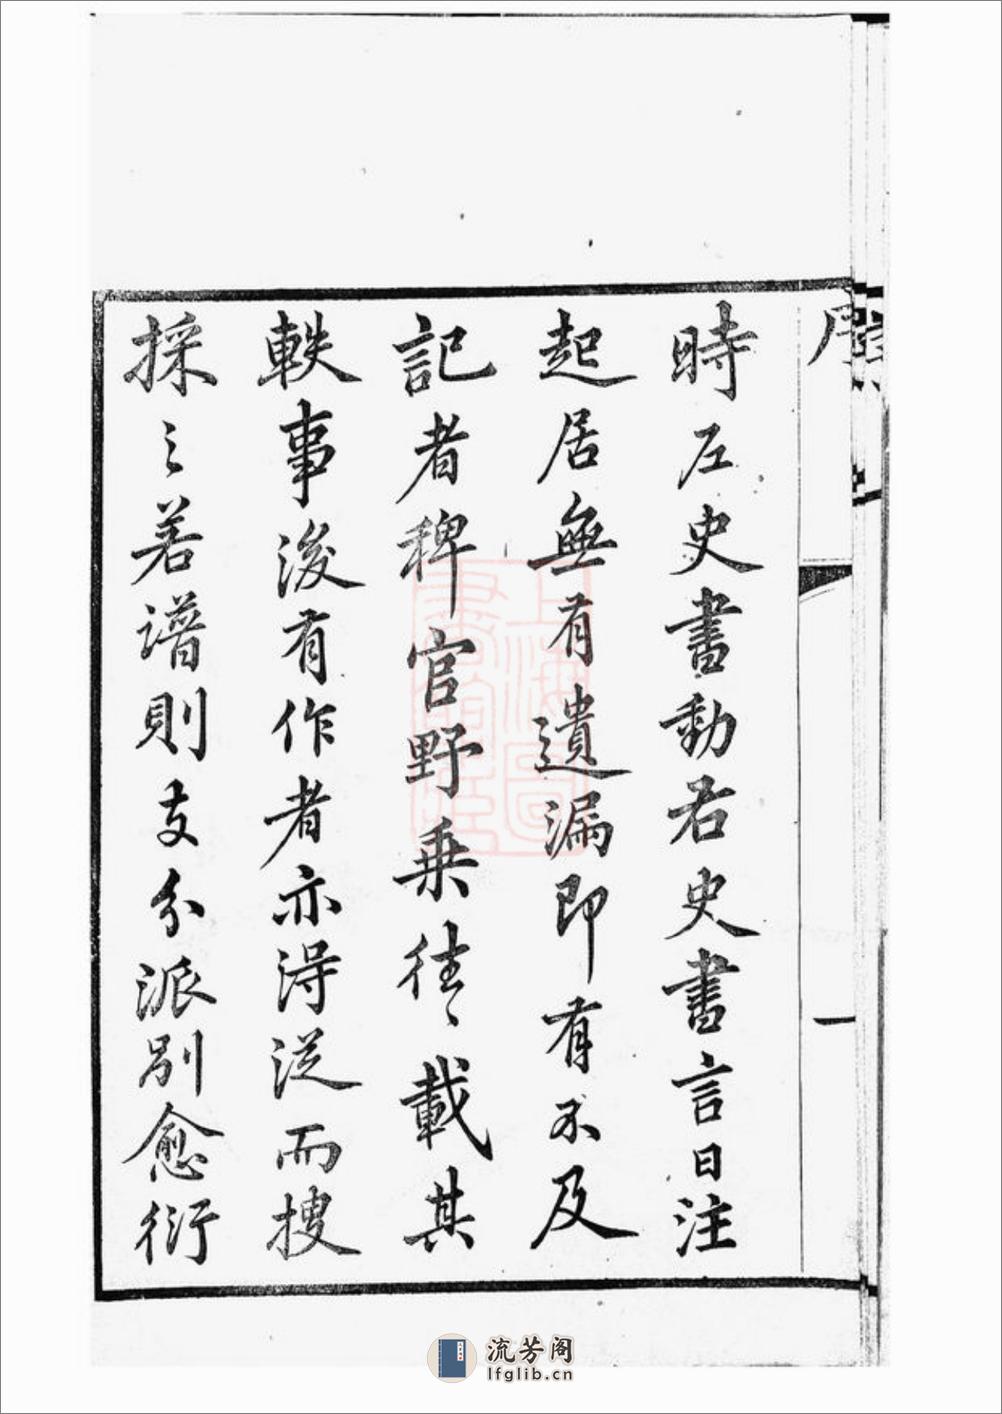 時左史書動右史書言日注
起居無有遺漏即有不及
記者稗官野乘往〻載其
軼事後有作者亦得從而搜
採之若譜則支分派別愈衍
序
一
上海圖書館藏
流芳阁
lfglib.cn